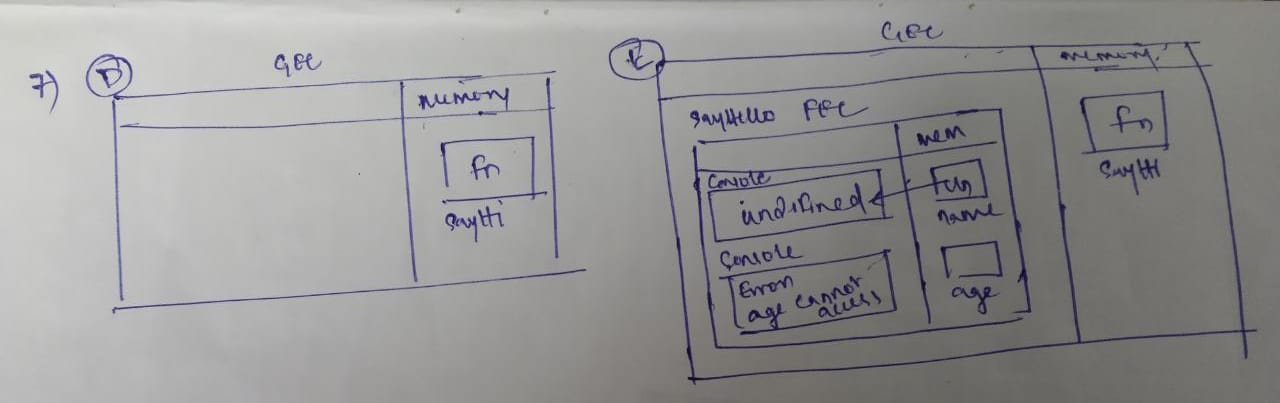 7)
D
GEC
memory
fn
SayHi
E
GEC
memory
SayHello FEC
mem
Console
undefined
name
Console
Error
age cannot
access
age
fn
SayHi